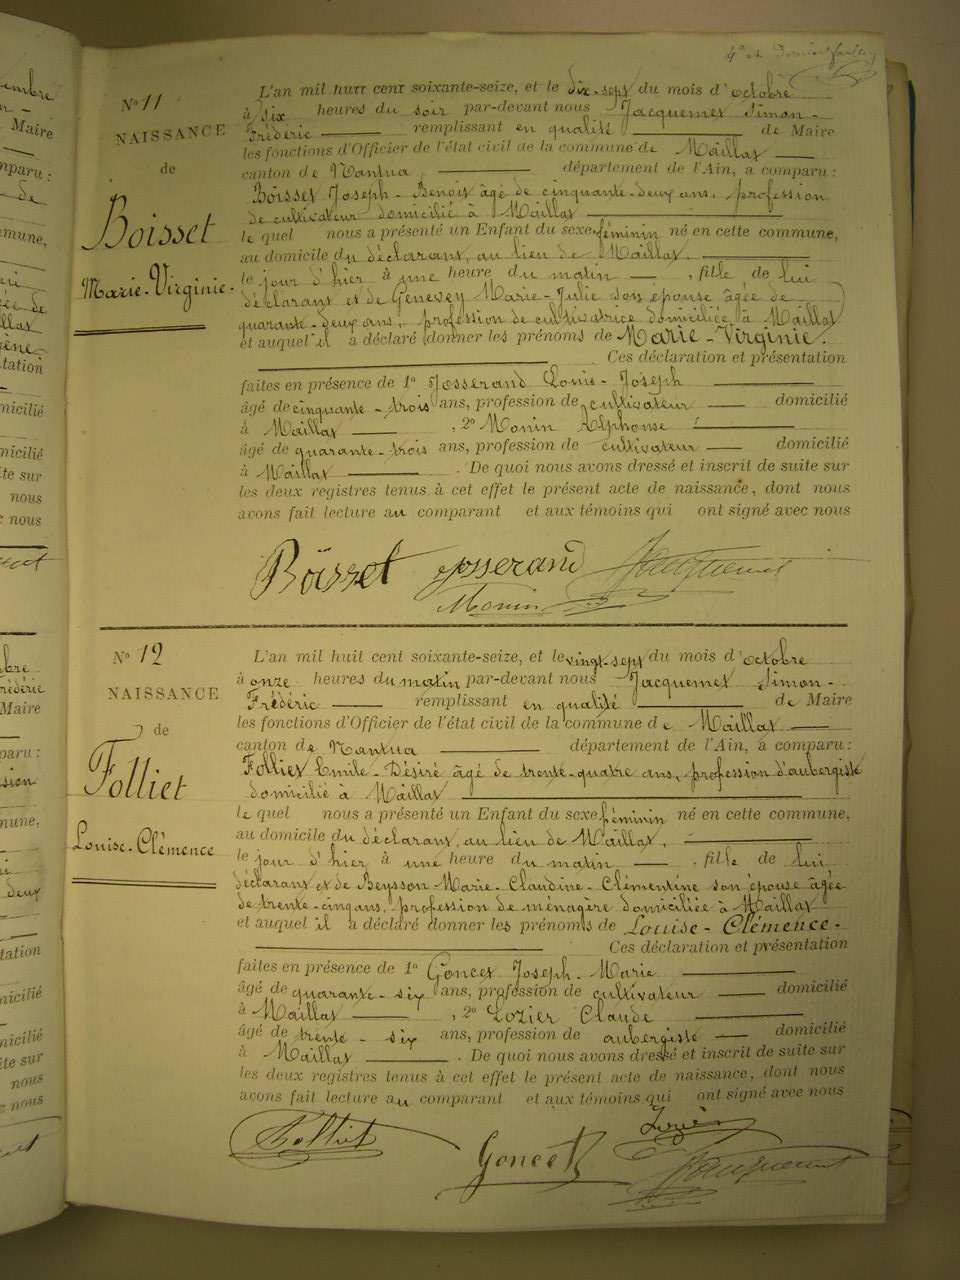 4e et Dernier feuillet
No 11
NAISSANCE
de
Boisset
Marie-Virginie.
L'an mil huit cent soixante-seize, et le dix-sept du mois d'octobre
à six heures du soir par-devant nous Jacquemet Simon-
Frédéric remplissant en qualité de Maire
les fonctions d'Officier de l'état civil de la commune de Maillat
canton de Nantua, département de l'Ain, a comparu :
Boisset Joseph-Benoit âgé de cinquante-deux ans, profession
de cultivateur domicilié à Maillat
le quel nous a présenté un Enfant du sexe féminin né en cette commune,
au domicile du déclarant, au lieu de Maillat,
le jour d'hier à une heure du matin, fille de lui
déclarant et de Genevey Marie-Julie son épouse âgée de
quarante-deux ans, profession de cultivatrice domiciliée à Maillat
et auquel il a déclaré donner les prénoms de Marie-Virginie.
Ces déclaration et présentation
faites en présence de 1o Josserand Louis-Joseph
âgé de cinquante-trois ans, profession de cultivateur domicilié
à Maillat, 2o Monin Alphonse
âgé de quarante-trois ans, profession de cultivateur domicilié
à Maillat. De quoi nous avons dressé et inscrit de suite sur
les deux registres tenus à cet effet le présent acte de naissance, dont nous
avons fait lecture au comparant et aux témoins qui ont signé avec nous
Boisset Josserand Jacquemet
Monin
No 12
NAISSANCE
de
Folliet
Louise-Clémence
L'an mil huit cent soixante-seize, et le vingt-sept du mois d'octobre
à onze heures du matin par-devant nous Jacquemet Simon-
Frédéric remplissant en qualité de Maire
les fonctions d'Officier de l'état civil de la commune de Maillat
canton de Nantua département de l'Ain, a comparu :
Folliet Emile-Désiré âgé de trente-quatre ans, profession d'aubergiste
domicilié à Maillat
le quel nous a présenté un Enfant du sexe féminin né en cette commune,
au domicile du déclarant, au lieu de Maillat,
le jour d'hier à une heure du matin, fille de lui
déclarant et de Beysson Marie-Claudine-Clémentine son épouse âgée
de trente-cinq ans, profession de ménagère domiciliée à Maillat
et auquel il a déclaré donner les prénoms de Louise-Clémence.
Ces déclaration et présentation
faites en présence de 1o Goncet Joseph-Marie
âgé de quarante-six ans, profession de cultivateur domicilié
à Maillat, 2o Lozier Claude
âgé de trente-six ans, profession de aubergiste domicilié
à Maillat. De quoi nous avons dressé et inscrit de suite sur
les deux registres tenus à cet effet le présent acte de naissance, dont nous
avons fait lecture au comparant et aux témoins qui ont signé avec nous
Folliet Goncet Jacquemet